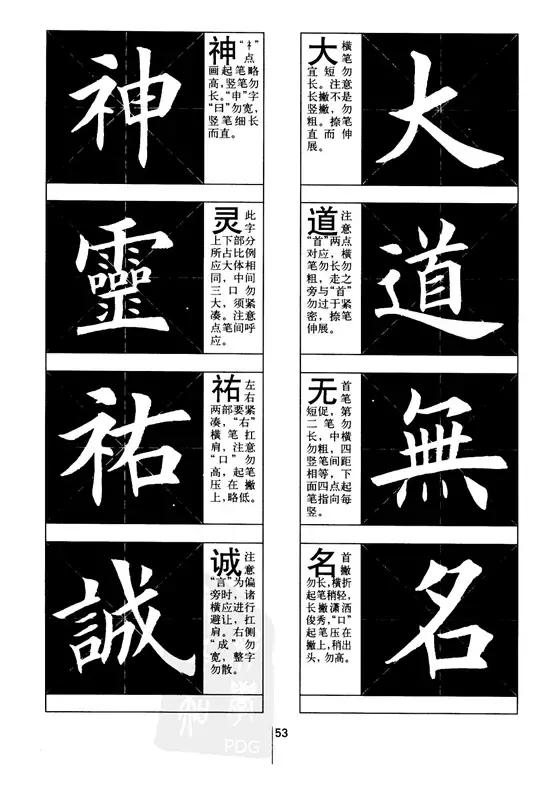 大
大 横
笔
宜短勿
长。注意
长撇不是
竖撇,勿
粗。捺笔
直而伸
展。
道
道 注
意
“首”两点
对应,横
笔勿长勿
粗,走之
旁与“首”
勿过于紧
密,捺笔
伸展。
無
无 首
笔
短促,第
二笔勿
长,中横
勿粗,四
竖笔间距
相等,下
面四点起
笔指向每
竖。
名
名 首
撇
勿长,横折
起笔稍轻,
长撇潇洒
俊秀,“口”
起笔压在
撇上,稍出
头,勿高。
神
神 “礻”
点
画起笔略
高,竖笔勿
长。“申”字
“曰”勿宽,
竖笔细长
而直。
靈
灵 此
字
上下部分
所占比例
应大体相
同,中间
三口勿
大,须紧
凑。注意
点笔间呼
应。
祐
祐 左
右
两部要紧
凑,“右”
横笔扛
肩,注意
“口”勿
高,起笔
压在撇
上,略低。
誠
诚 注
意
“言”为偏
旁时,诸
横应进行
避让,扛
肩。右侧
“成”勿
宽,整字
勿散。
53
PDG